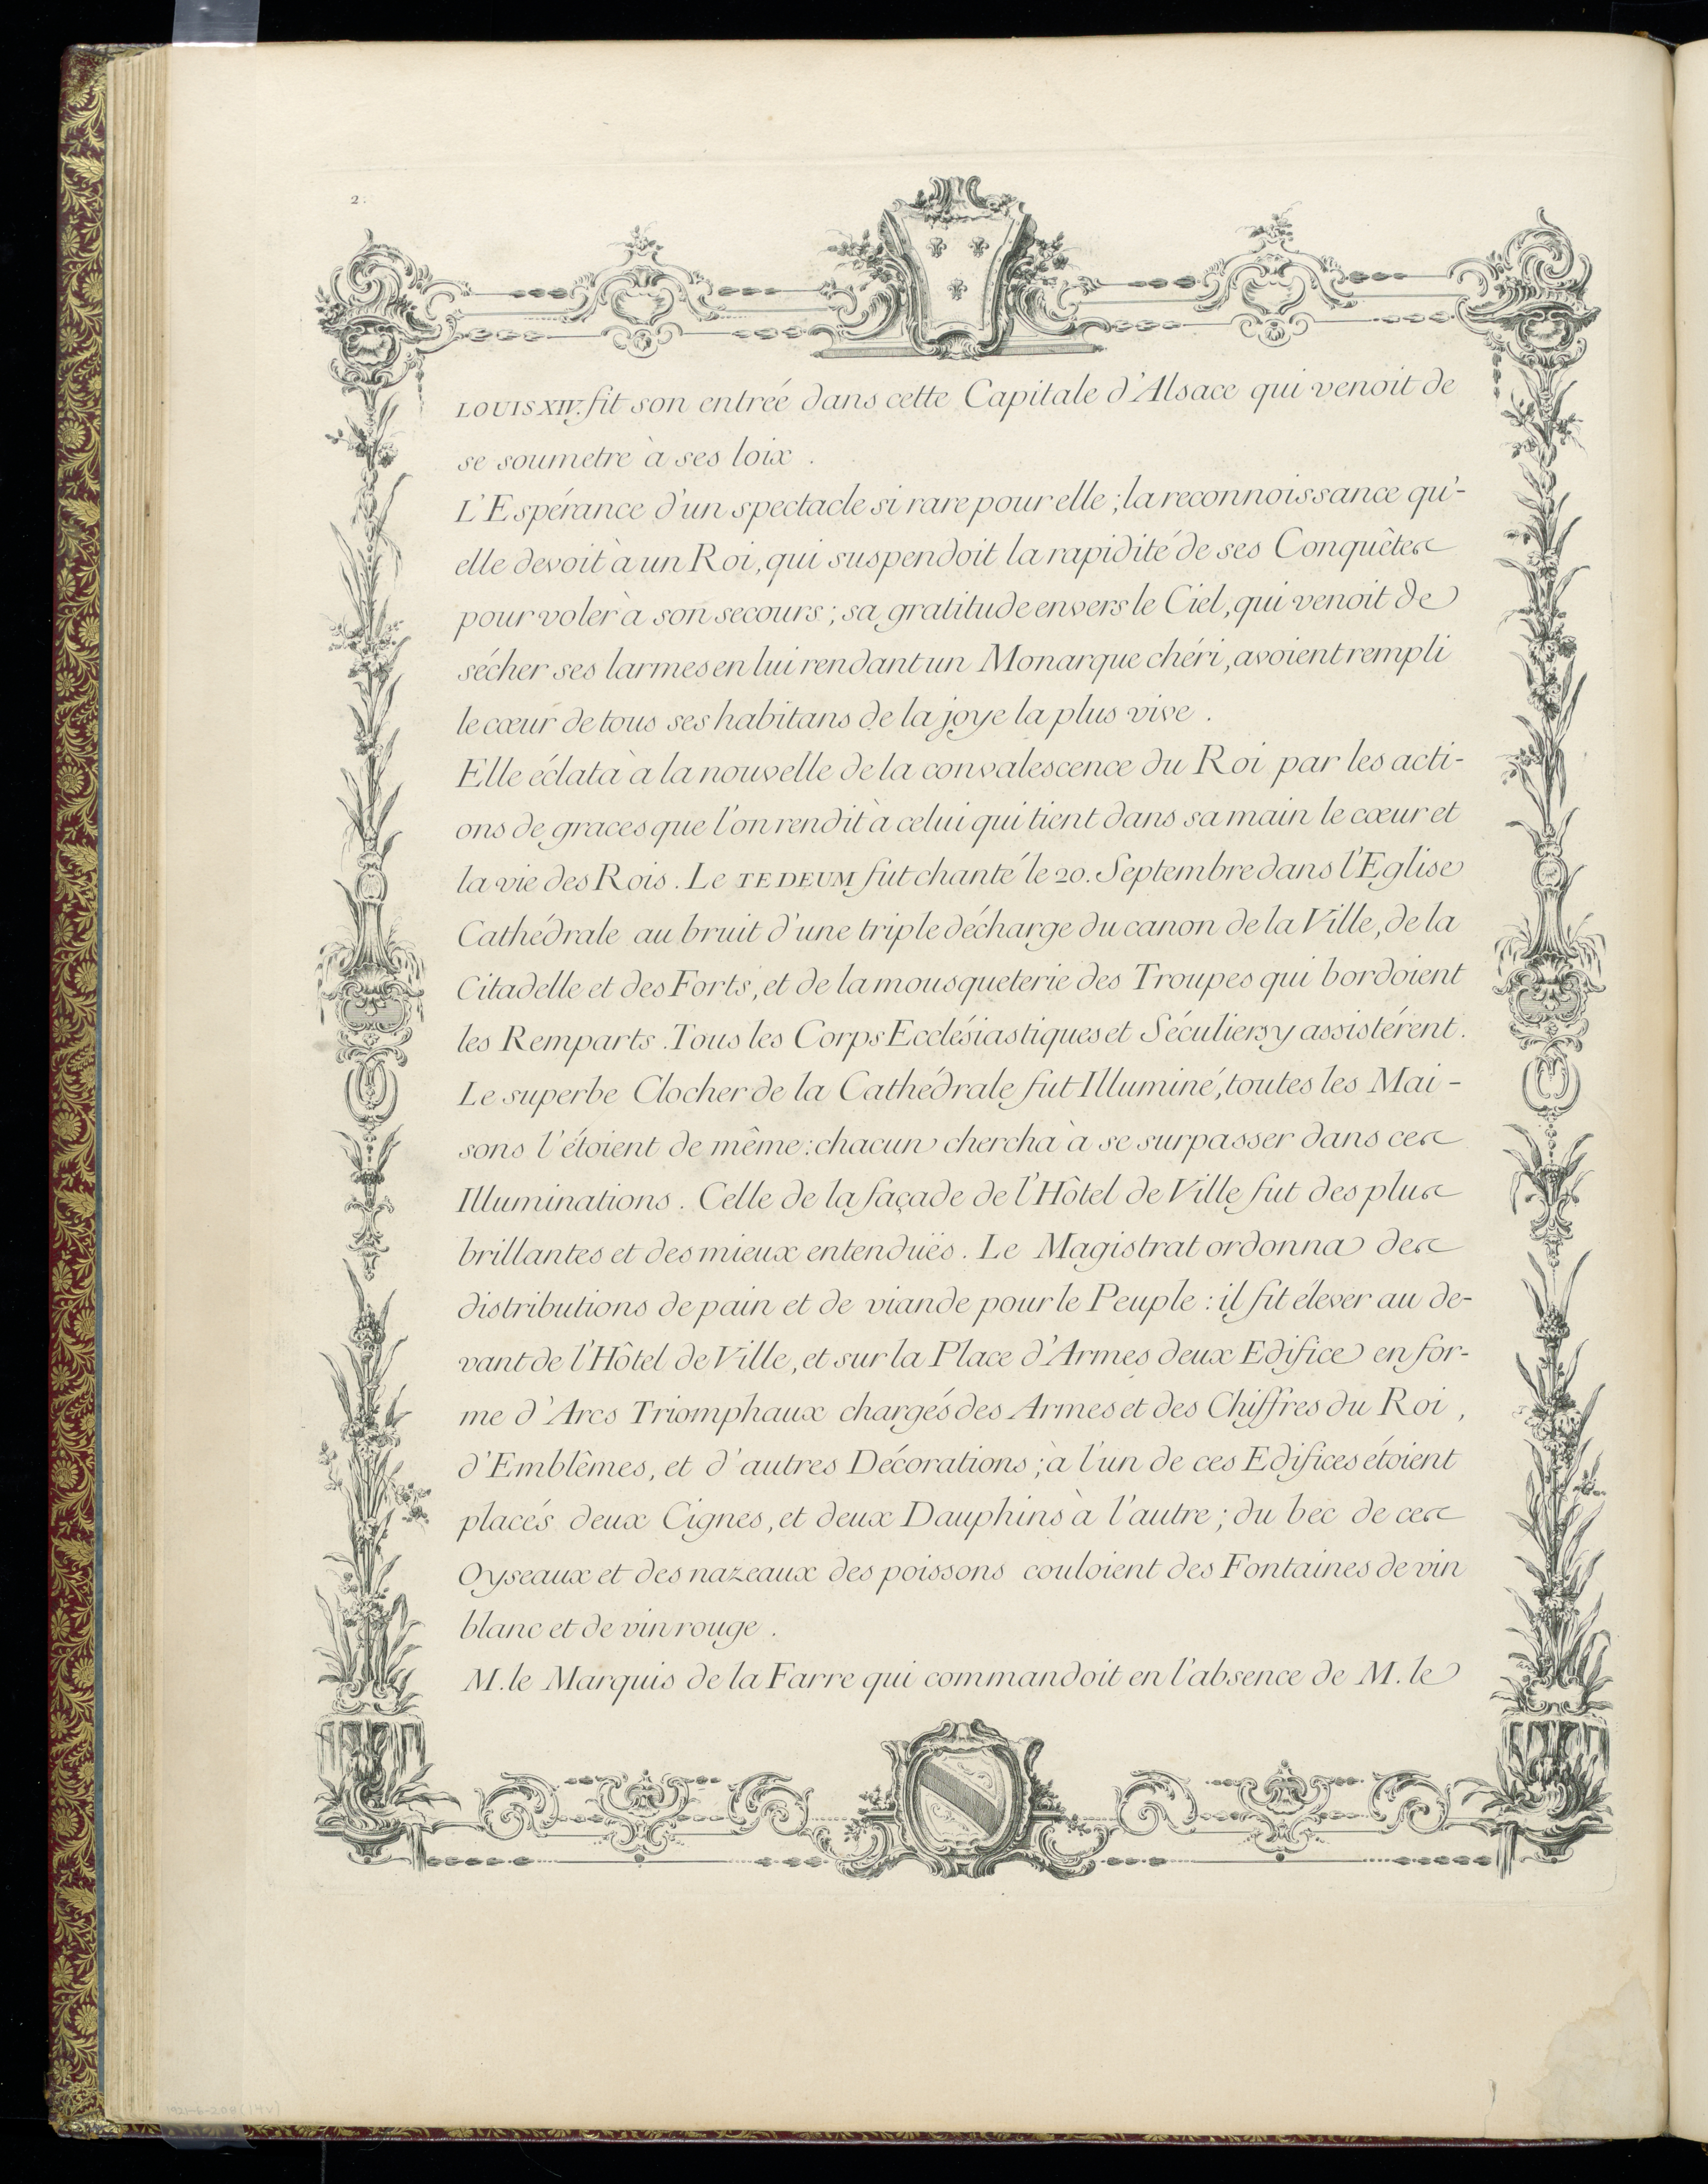 2.
LOUIS XIV. fit son entréé dans cette Capitale d'Alsace qui venoit de
se soumetre à ses loix.
L'Espérance d'un spectacle si rare pour elle; la reconnoissance qu'-
elle devoit à un Roi, qui suspendoit la rapidité de ses Conquêtes
pour voler à son secours; sa gratitude envers le Ciel, qui venoit de
sécher ses larmes en lui rendant un Monarque chéri, avoient rempli
le cœur de tous ses habitans de la joye la plus vive.
Elle éclata à la nouvelle de la convalescence du Roi par les acti-
ons de graces que l'on rendit à celui qui tient dans sa main le cœur et
la vie des Rois. Le TE DEUM fut chanté le 20. Septembre dans l'Eglise
Cathédrale au bruit d'une triple décharge du canon de la Ville, de la
Citadelle et des Forts, et de la mousqueterie des Troupes qui bordoient
les Remparts. Tous les Corps Ecclésiastiques et Séculiers y assistérent.
Le superbe Clocher de la Cathédrale fut Illuminé, toutes les Mai-
sons l'étoient de même: chacun chercha à se surpasser dans ces
Illuminations. Celle de la façade de l'Hôtel de Ville fut des plus
brillantes et des mieux entenduës. Le Magistrat ordonna des
distributions de pain et de viande pour le Peuple: il fit élever au de-
vant de l'Hôtel de Ville, et sur la Place d'Armes deux Edifice en for-
me d'Arcs Triomphaux chargés des Armes et des Chiffres du Roi,
d'Emblêmes, et d'autres Décorations; à l'un de ces Edifices étoient
placés deux Cignes, et deux Dauphins à l'autre; du bec de ces
Oyseaux et des nazeaux des poissons couloient des Fontaines de vin
blanc et de vin rouge.
M. le Marquis de la Farre qui commandoit en l'absence de M. le